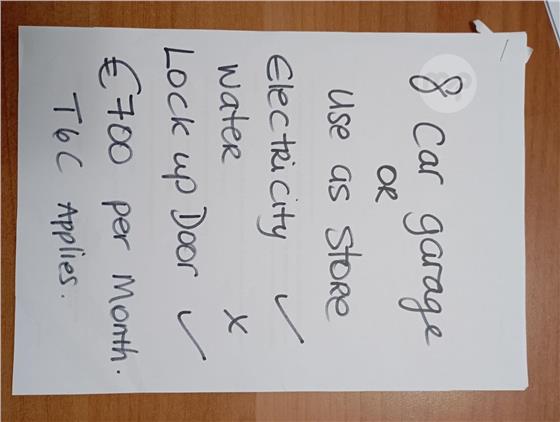 8 Car garage
OR
Use as store
Electricity ✓
Water x
Lock up Door ✓
€700 per Month.
T&C Applies.